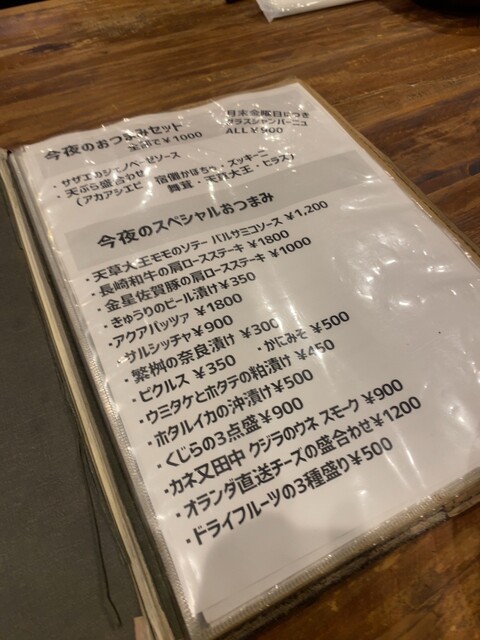 今夜のおつまみセット
全部で￥1000
月末金曜日につき
グラスシャンパーニュ
ALL￥900
・サザエのジェノベーゼソース
・天ぷら盛合わせ
(アカアシエビ 宿儺かぼちゃ・ズッキーニ
舞茸・天草大王・ヒラス)
今夜のスペシャルおつまみ
・天草大王モモのソテー バルサミコソース ￥1,200
・長崎和牛の肩ロースステーキ ￥1800
・金星佐賀豚の肩ロースステーキ ￥1000
・きゅうりのビール漬け￥350
・アクアパッツァ ￥1800
・サルシッチャ￥900
・繁桝の奈良漬け ￥300 ・かにみそ ￥500
・ピクルス ￥350
・ウミタケとホタテの粕漬け ￥450
・ホタルイカの沖漬け￥500
・くじらの3点盛￥900
・カネ又田中 クジラのウネ スモーク ￥900
・オランダ直送チーズの盛合わせ￥1200
・ドライフルーツの3種盛り￥500